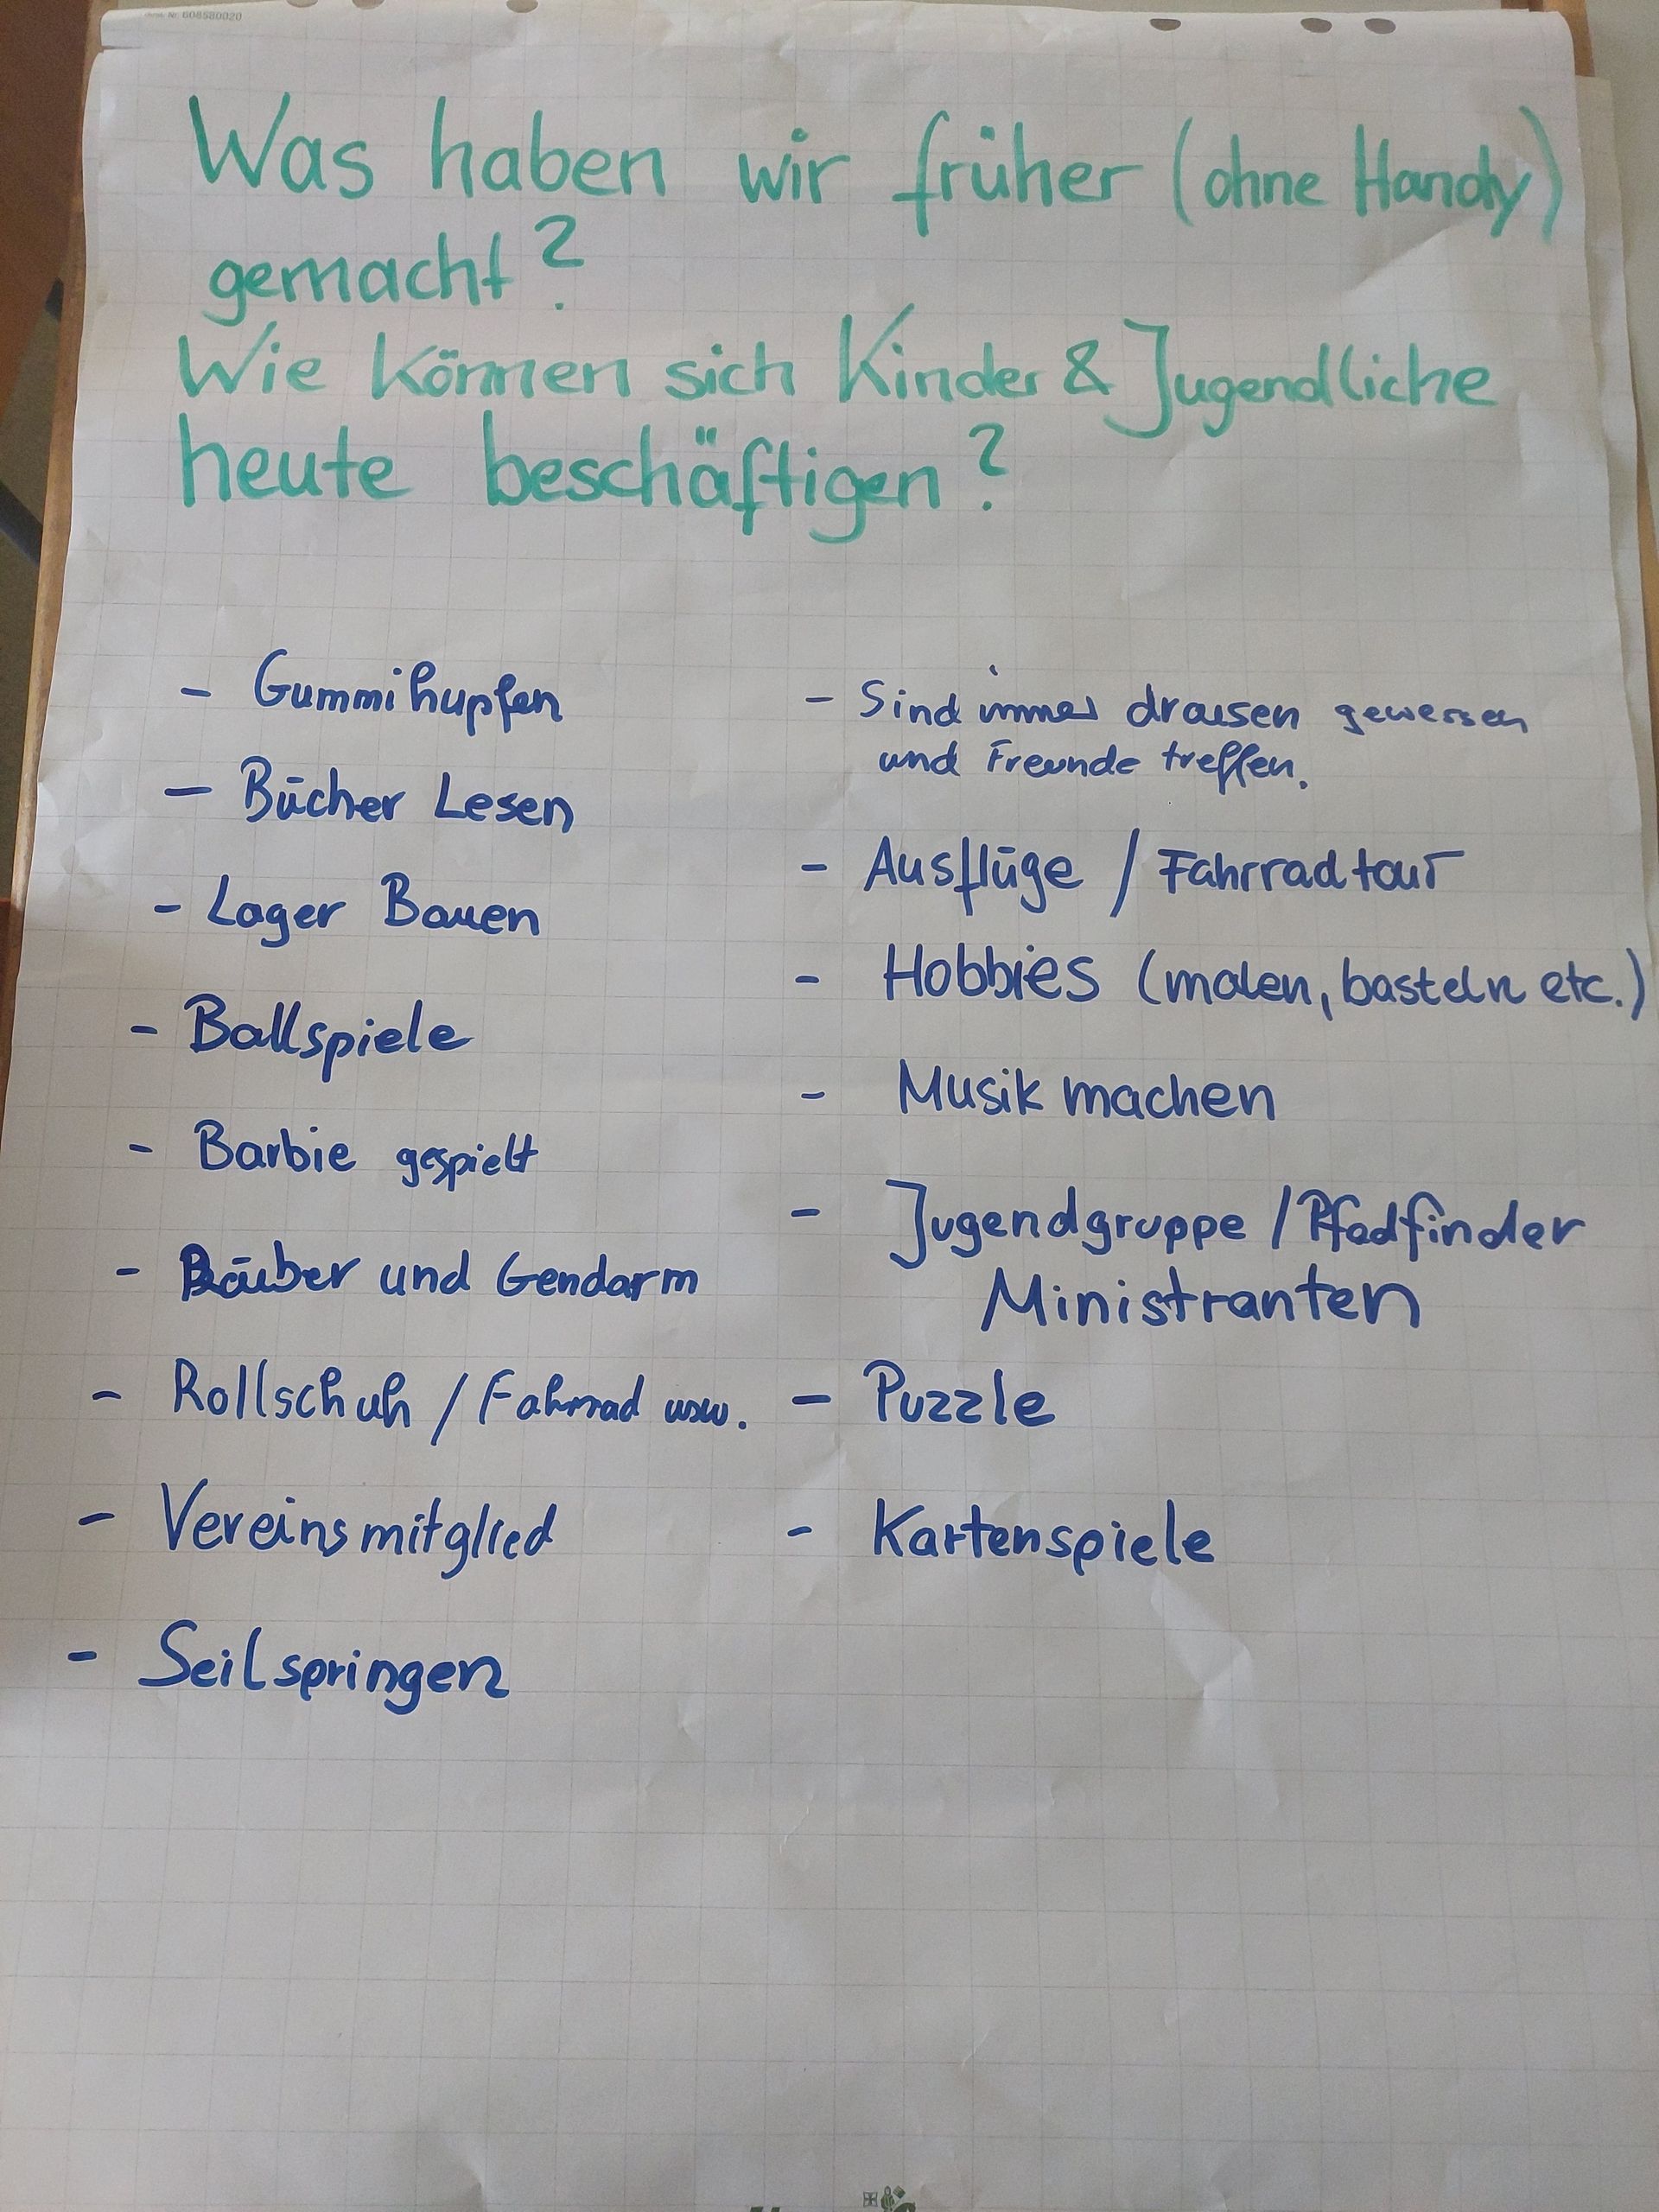 Nr. 608580020
Was haben wir früher (ohne Handy)
gemacht?
Wie können sich Kinder & Jugendliche
heute beschäftigen?
- Gummihupfen
- Bücher Lesen
- Lager Bauen
- Ballspiele
- Barbie gespielt
- Räuber und Gendarm
- Rollschuh / Fahrrad usw.
- Vereinsmitglied
- Seilspringen
- Sind immer drausen gewessen
und Freunde treffen.
- Ausflüge / Fahrradtour
- Hobbies (malen, basteln etc.)
- Musik machen
- Jugendgruppe / Pfadfinder
Ministranten
- Puzzle
- Kartenspiele